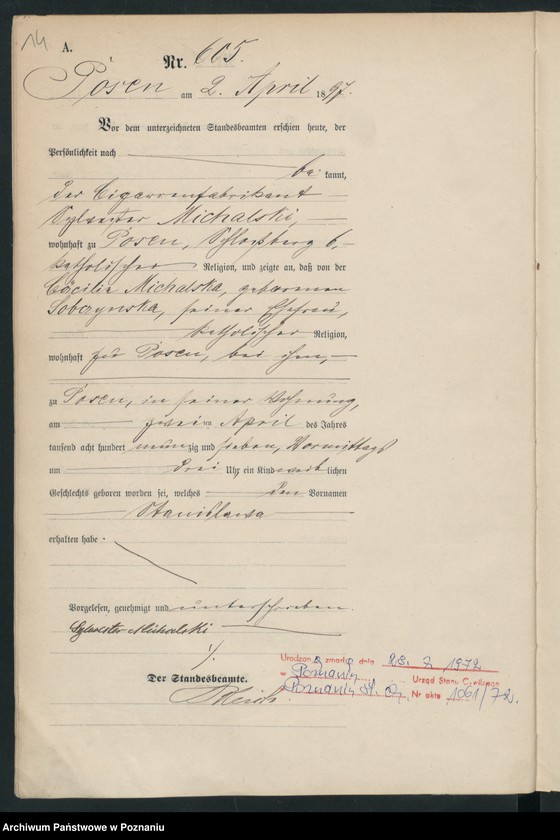 14
A.
Nr. 605.
Posen am 2. April 1897.
Vor dem unterzeichneten Standesbeamten erschien heute, der
Persönlichkeit nach
be kannt,
der Cigarrenfabrikant
Sylvester Michalski,
wohnhaft zu Posen, Schloßberg 6,
katholischer Religion, und zeigte an, daß von der
Cäcilie Michalska, geborenen
Sobczynska, seiner Ehefrau,
katholischer Religion,
wohnhaft zu Posen, bei ihm,
zu Posen, in seiner Wohnung,
am zweiten April des Jahres
tausend acht hundert neunzig und sieben, Vormittags
um drei Uhr ein Kind weiblichen
Geschlechts geboren worden sei, welches den Vornamen
Stanislawa
erhalten habe.
Vorgelesen, genehmigt und unterschrieben.
Sylwester Michalski
Der Standesbeamte.
Urodzon a zmarła dnia 28. 2. 1972
w Poznaniu
Urząd Stanu Cywilnego
Poznaniu St. M. Nr aktu 1061/72.
Archiwum Państwowe w Poznaniu